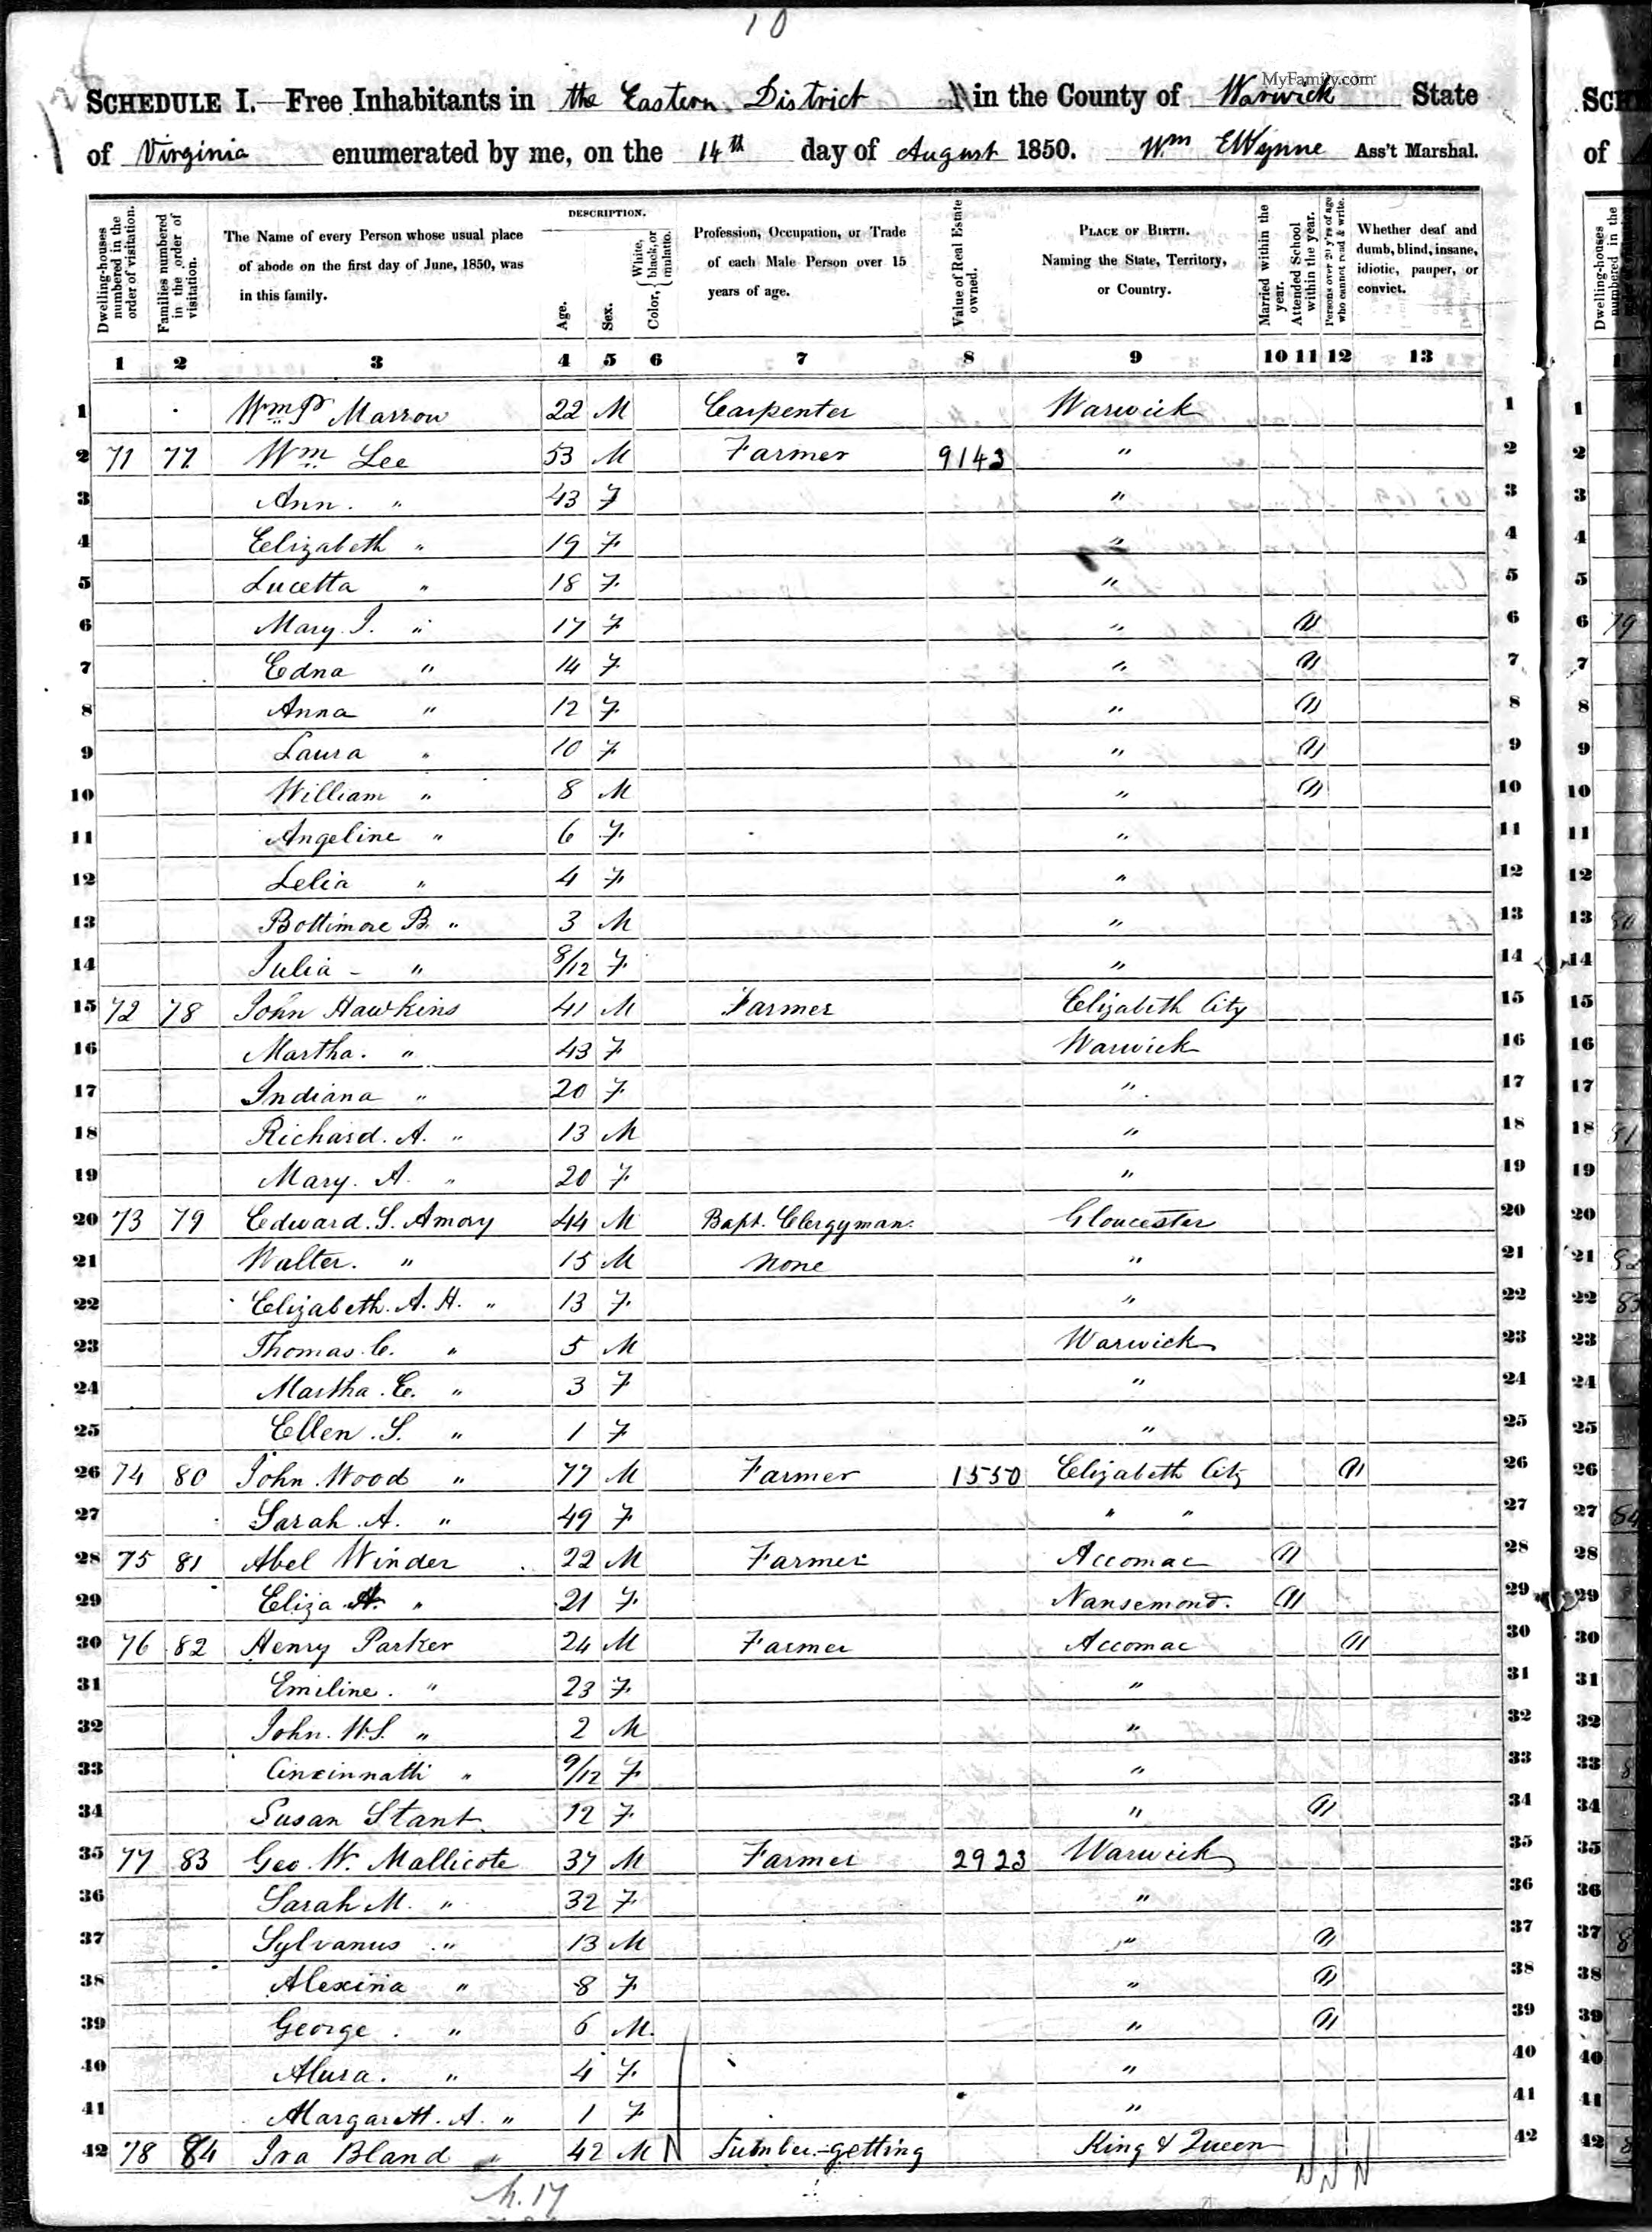 10
MyFamily.com
SCHEDULE I.—Free Inhabitants in the Eastern District in the County of Warwick State
of Virginia enumerated by me, on the 14th day of August 1850. Wm E Wynne Ass't Marshal.
Dwelling-houses numbered in the order of visitation.
Families numbered in the order of visitation.
The Name of every Person whose usual place of abode on the first day of June, 1850, was in this family.
DESCRIPTION.
Age.
Sex.
Color, { White, black, or mulatto.
Profession, Occupation, or Trade of each Male Person over 15 years of age.
Value of Real Estate owned.
PLACE OF BIRTH. Naming the State, Territory, or Country.
Married within the year.
Attended School within the year.
Persons over 20 y'rs of age who cannot read & write.
Whether deaf and dumb, blind, insane, idiotic, pauper, or convict.
1 2 3 4 5 6 7 8 9 10 11 12 13
1 Wm P Marrow 22 M Carpenter Warwick 1
2 71 77 Wm Lee 53 M Farmer 9143 " 2
3 Ann. " 43 F " 3
4 Elizabeth " 19 F " 4
5 Lucetta " 18 F " 5
6 Mary J. " 17 F " 1 6
7 Edna " 14 F " 1 7
8 Anna " 12 F " 1 8
9 Laura " 10 F " 1 9
10 William " 8 M " 1 10
11 Angeline " 6 F " 11
12 Lelia " 4 F " 12
13 Bottimore B. " 3 M " 13
14 Julia - " 8/12 F " 14
15 72 78 John Hawkins 41 M Farmer Elizabeth City 15
16 Martha. " 43 F Warwick 16
17 Indiana " 20 F " 17
18 Richard. A. " 13 M " 18
19 Mary. A. " 20 F " 19
20 73 79 Edward. S. Amory 44 M Bapt. Clergyman. Gloucester 20
21 Walter. " 15 M None " 21
22 Elizabeth. A. H. " 13 F " 22
23 Thomas. C. " 5 M Warwick 23
24 Martha. E. " 3 F " 24
25 Ellen. S. " 1 F " 25
26 74 80 John Wood " 77 M Farmer 1550 Elizabeth City 1 26
27 Sarah. A. " 49 F " " 27
28 75 81 Abel Winder 22 M Farmer Accomac 1 28
29 Eliza A. " 21 F Nansemond. 1 29
30 76 82 Henry Parker 24 M Farmer Accomac 1 30
31 Emiline. " 23 F " 31
32 John. W.S. " 2 M " 32
33 Cincinnatti " 9/12 F " 33
34 Susan Stant 12 F " 1 34
35 77 83 Geo. W. Mallicote 37 M Farmer 2923 Warwick 35
36 Sarah M. " 32 F " 36
37 Sylvanus " 13 M " 1 37
38 Alexina " 8 F " 1 38
39 George. " 6 M. " 1 39
40 Alura. " 4 F " 40
41 Margarett. A. " 1 F " 41
42 78 84 Ira Bland 42 M Lumber-getting King & Queen 42
17